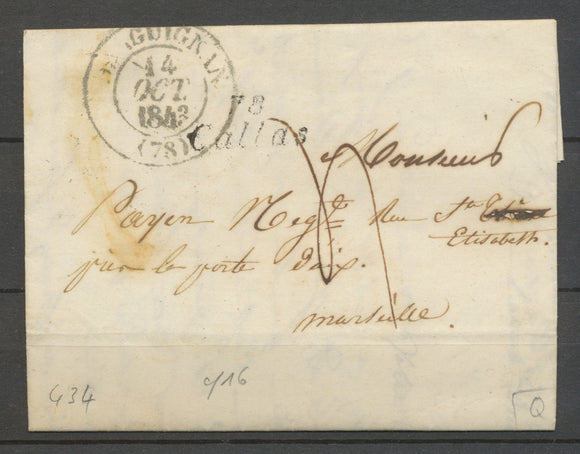 DRAGUIGNAN
14
OCT.
1843
(78)
78
Callas
Monsieur
Payen Negt. Rue Ste
Elisabeth.
près la porte d'aix.
marseille.
434
916
Q